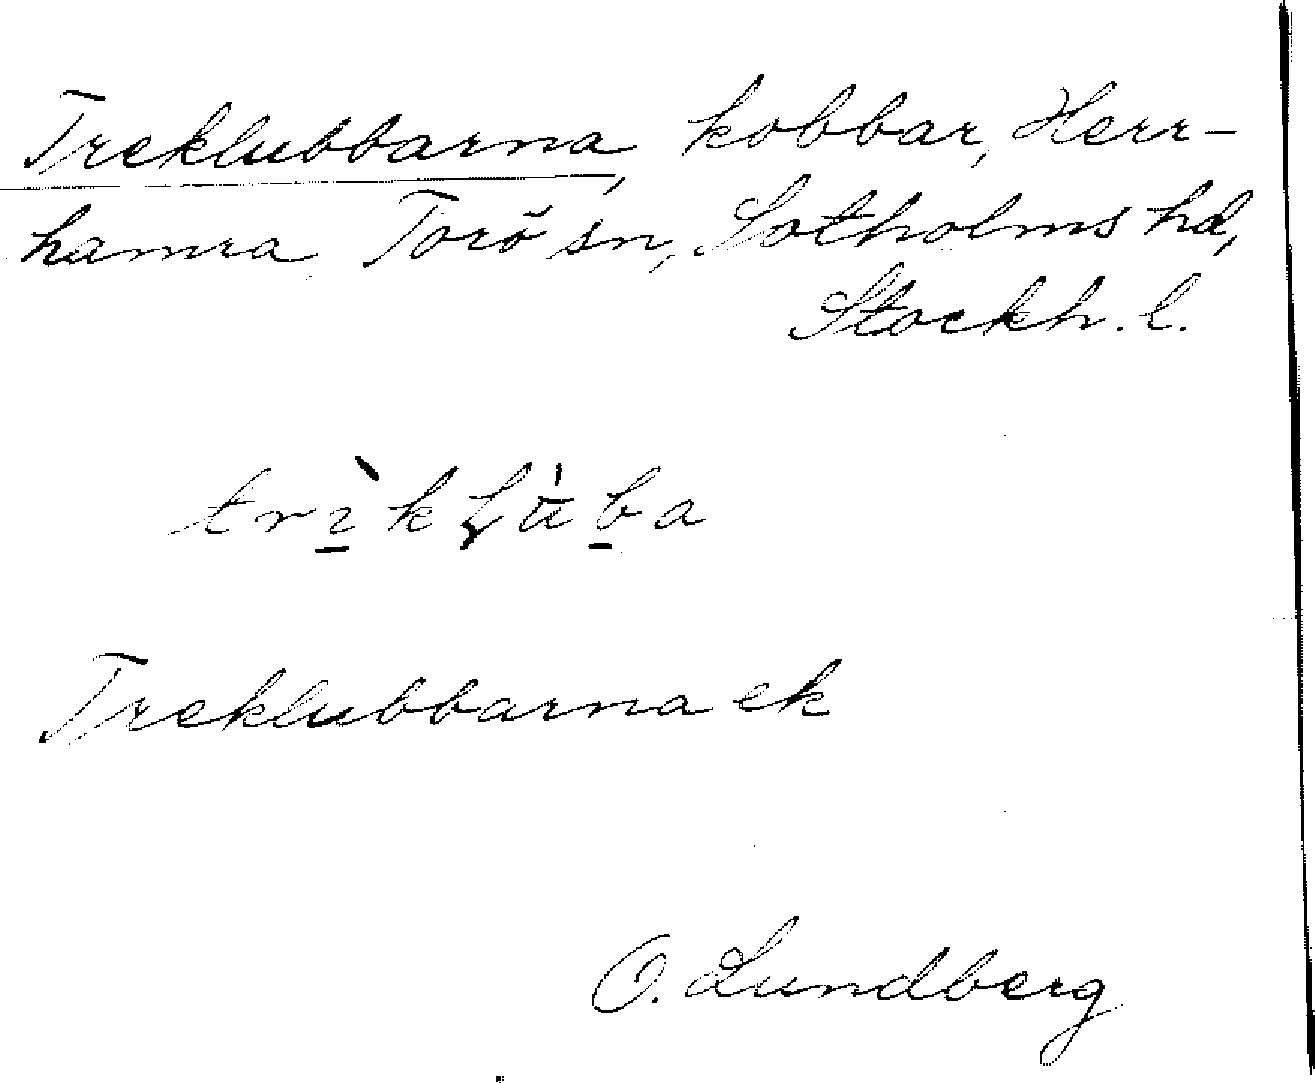 Treklubbarna, kobbar, Herr-
hamra Torö sn, Sotholms hd,
Stockh. l.
Treklubbarna ek
O. Lundberg